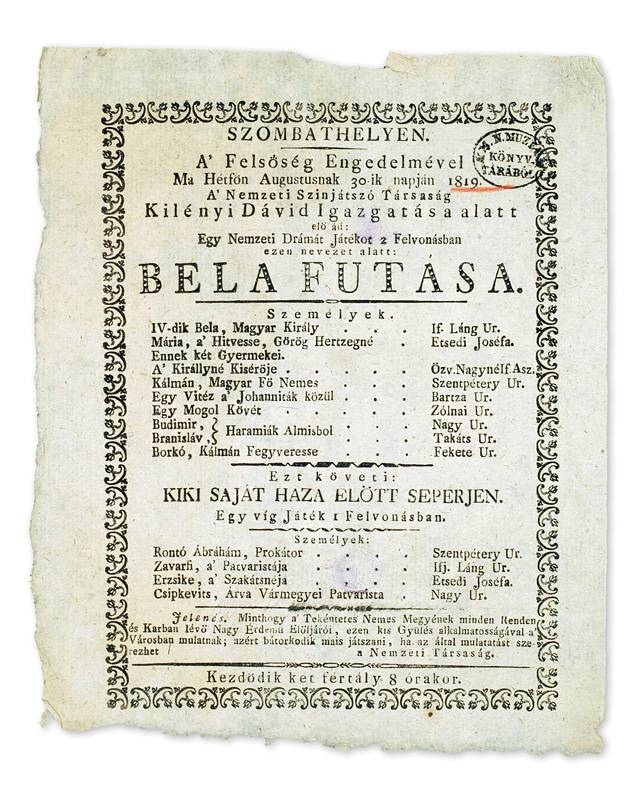 SZOMBATHELYEN.
A' Felsőség Engedelmével
Ma Hétfön Augustusnak 30-ik napján 1819
A' Nemzeti Szinjátszó Társaság
Kilényi Dávid Igazgatása alatt
elö ád:
Egy Nemzeti Drámát Játékot 2 Felvonásban
ezen nevezet alatt:
BELA FUTÁSA.
Személyek.
IV-dik Bela, Magyar Király . . . If. Láng Ur.
Mária, a' Hitvesse, Görög Hertzegné . Etsedi Joséfa.
Ennek két Gyermekei.
A' Királlyné Kisérője . . . . . Özv. Nagynélf. Asz.
Kálmán, Magyar Fö Nemes . . . Szentpétery Ur.
Egy Vitéz a' Johanniták közül . . . Bartza Ur.
Egy Mogol Kövét . . . . . Zólnai Ur.
Budimir, } Haramiák Almisbol . . . Nagy Ur.
Branisláv, } . . Takáts Ur.
Borkó, Kálmán Fegyveresse . . . Fekete Ur.
Ezt követi:
KIKI SAJÁT HAZA ELÖTT SEPERJEN.
Egy víg Játék 1 Felvonásban.
Személyek:
Rontó Ábráhám, Prokátor . . . . Szentpétery Ur.
Zavarfi, a' Patvaristája . . . . Ifj. Láng Ur.
Erzsike, a' Szakátsnéja . . . . Etsedi Joséfa.
Csipkevits, Árva Vármegyei Patvarista . Nagy Ur.
Jelenés. Minthogy a' Tekéntetes Nemes Megyének minden Renden
és Karban lévő Nagy Érdemü Elöljárói, ezen kis Gyülés alkalmatosságával a'
Városban mulatnak; azért bátorkodik mais játszani, ha az által mulatást sze-
rezhet a Nemzeti Társaság.
Kezdödik két fertály 8 órakor.
N. MUZ.
KÖNYV-
TÁRÁBÓL